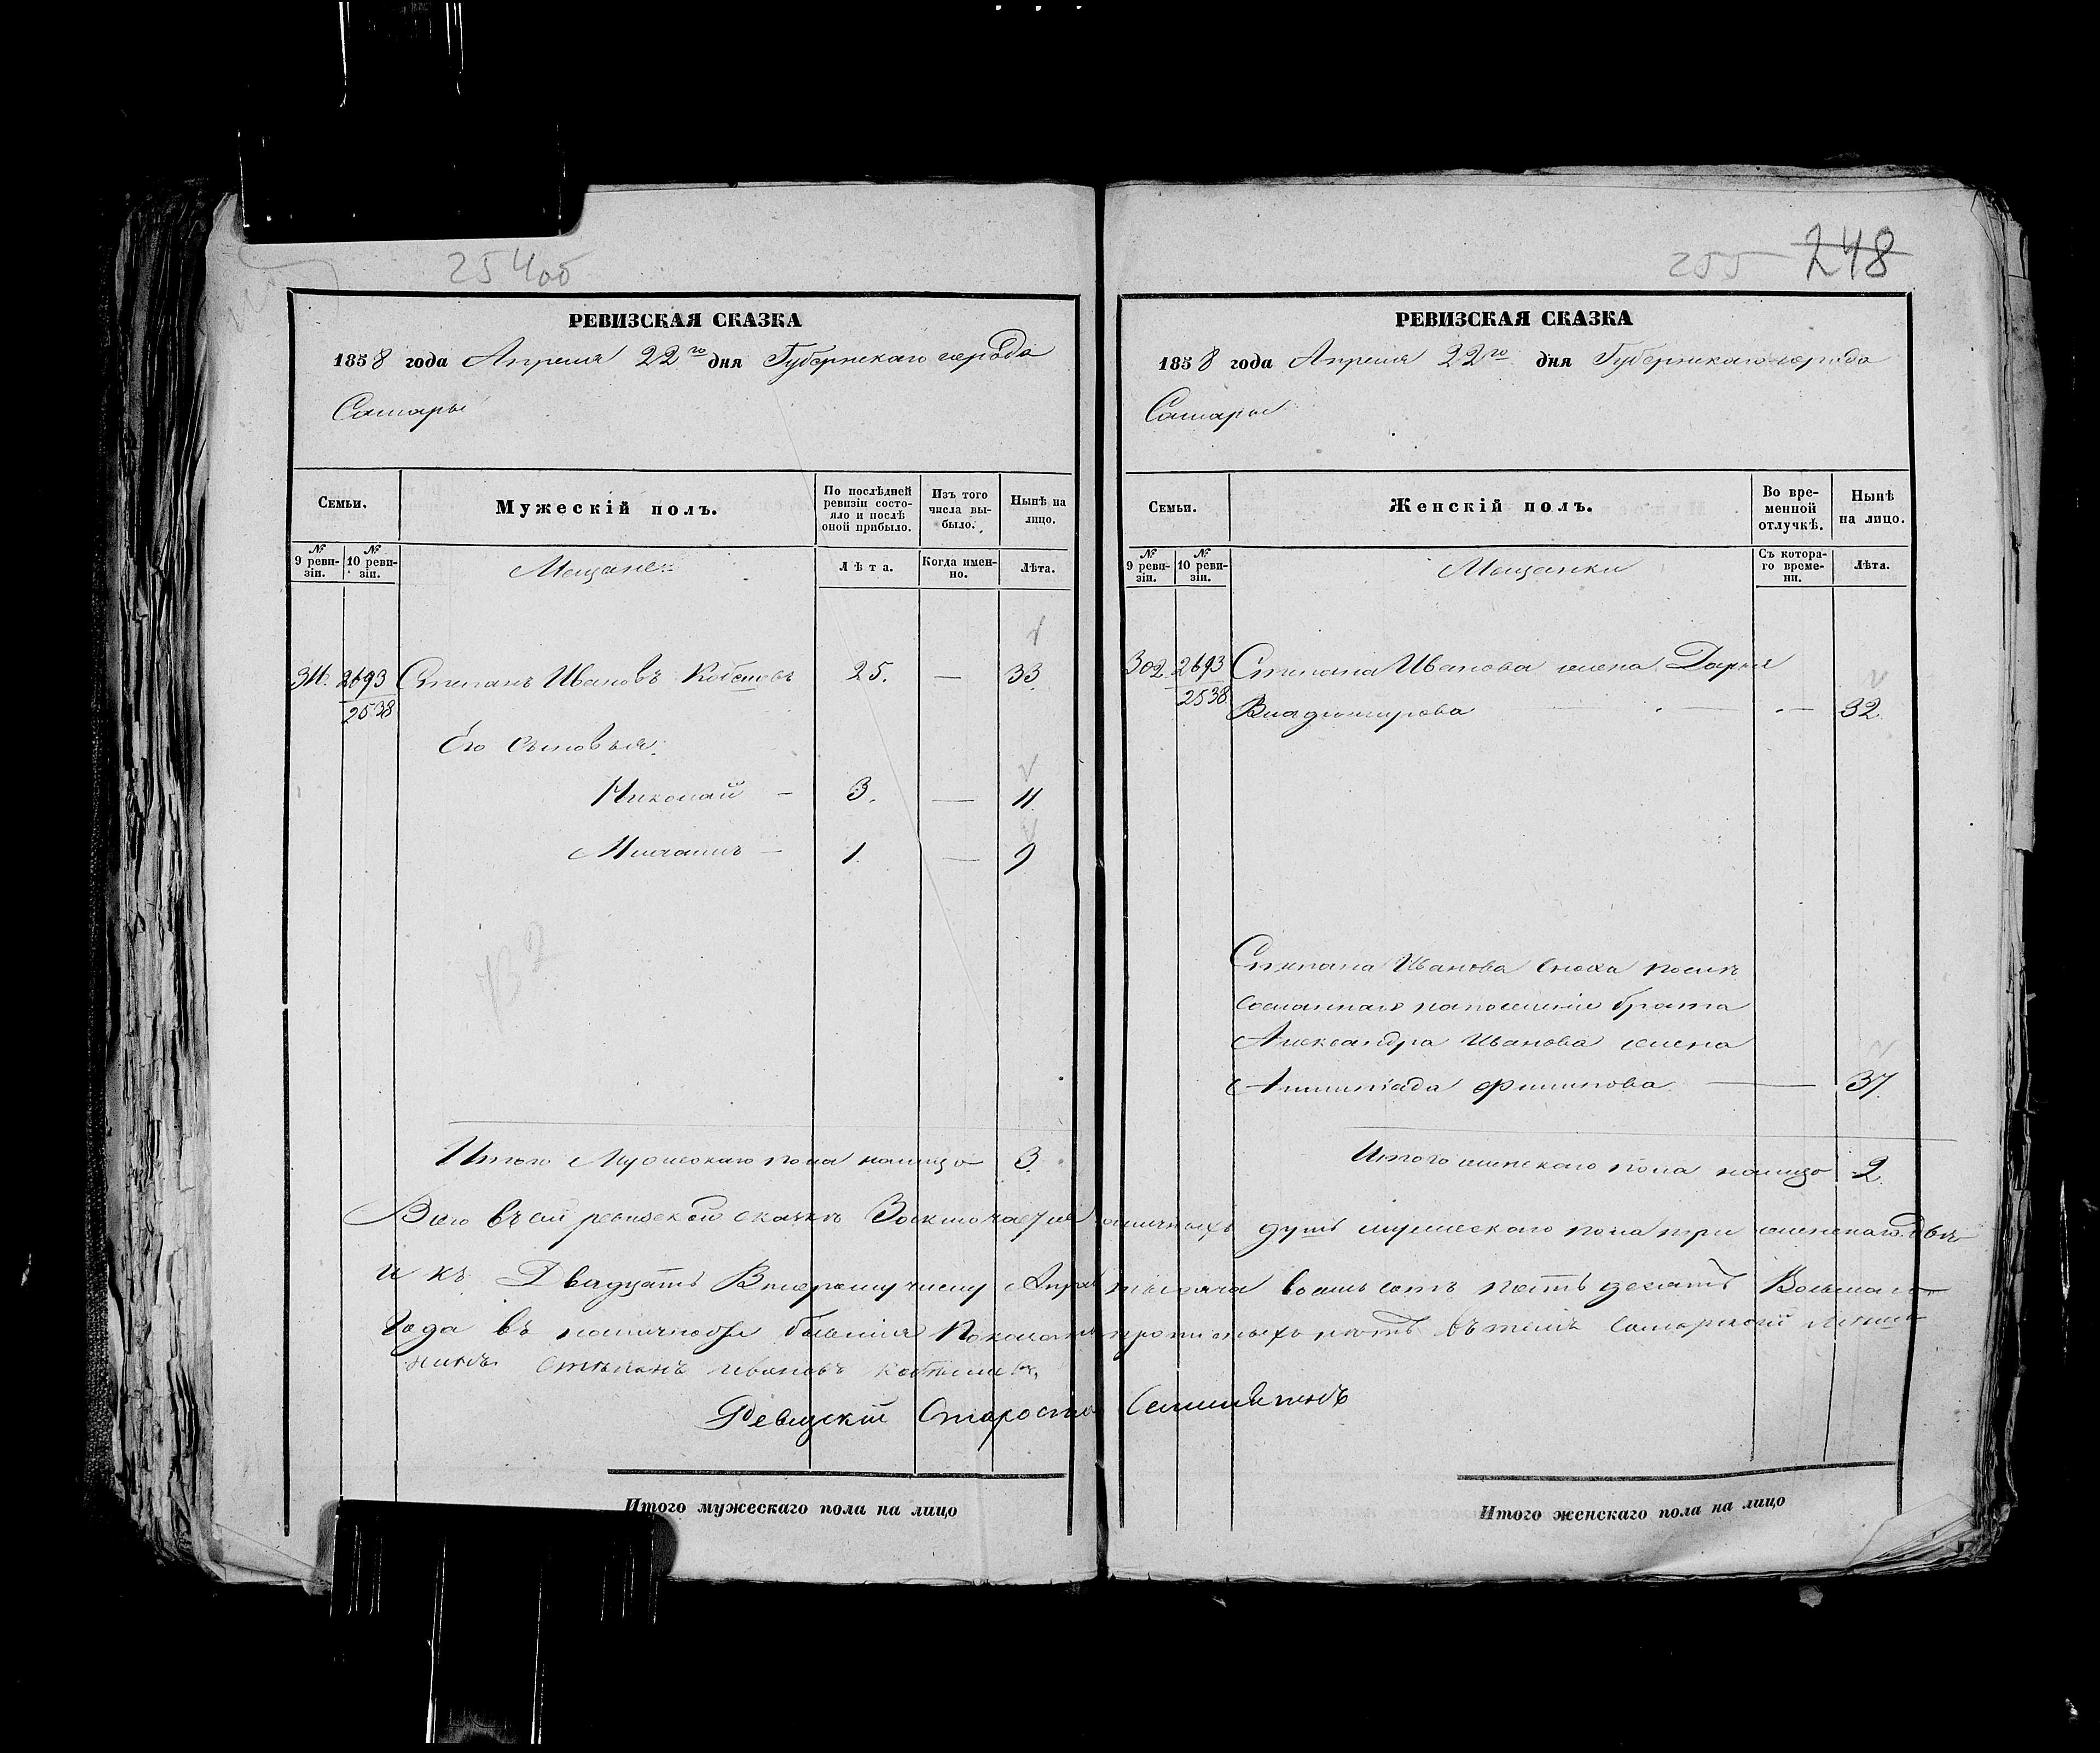 254об
РЕВИЗСКАЯ СКАЗКА
1858 года Апреля 22го дня Губернскаго города
Самары
Семьи.
Мужескій полъ.
По послѣдней ревизіи состо-
яло и послѣ
оной прибыло.
Изъ того
числа вы-
было.
Нынѣ на
лицо.
№ 9 реви-
зіи.
№ 10 реви-
зіи.
Мещанен
Лѣта.
Когда имен-
но.
Лѣта.
311. 2693 Степанъ Ивановъ 25. — 33
2538
Его сыновья:
Николай — 3. — 11
Михаилъ — 1. — 9
132
Итого Мужескаго пола налицо 3.
255 248
РЕВИЗСКАЯ СКАЗКА
1858 года Апреля 22го дня Губернскаго города
Самары
Семьи.
Женскій полъ.
Во вре-
менной
отлучкѣ.
Нынѣ
на лицо.
№ 9 реви-
зіи.
№ 10 реви-
зіи.
Мещанки
Съ котора-
го време-
ни.
Лѣта.
302. 2693 Степана Иванова жена Дарья
2538 Владимирова — — 32
Степана Иванова сноха
брата
Александра Иванова жена
Филипова — 37.
Итого женскаго пола налицо 2
Всего въ сей ревизской сказкѣ Заключается наличныхъ душъ мужескаго пола три женскаго двѣ
и къ Двадцать Второму числу Апреля тысяча восемь сотъ пять десятъ Восьмаго
Года въ
Степанъ Ивановъ
Ревизскій Староста
Итого мужескаго пола на лицо
Итого женскаго пола на лицо